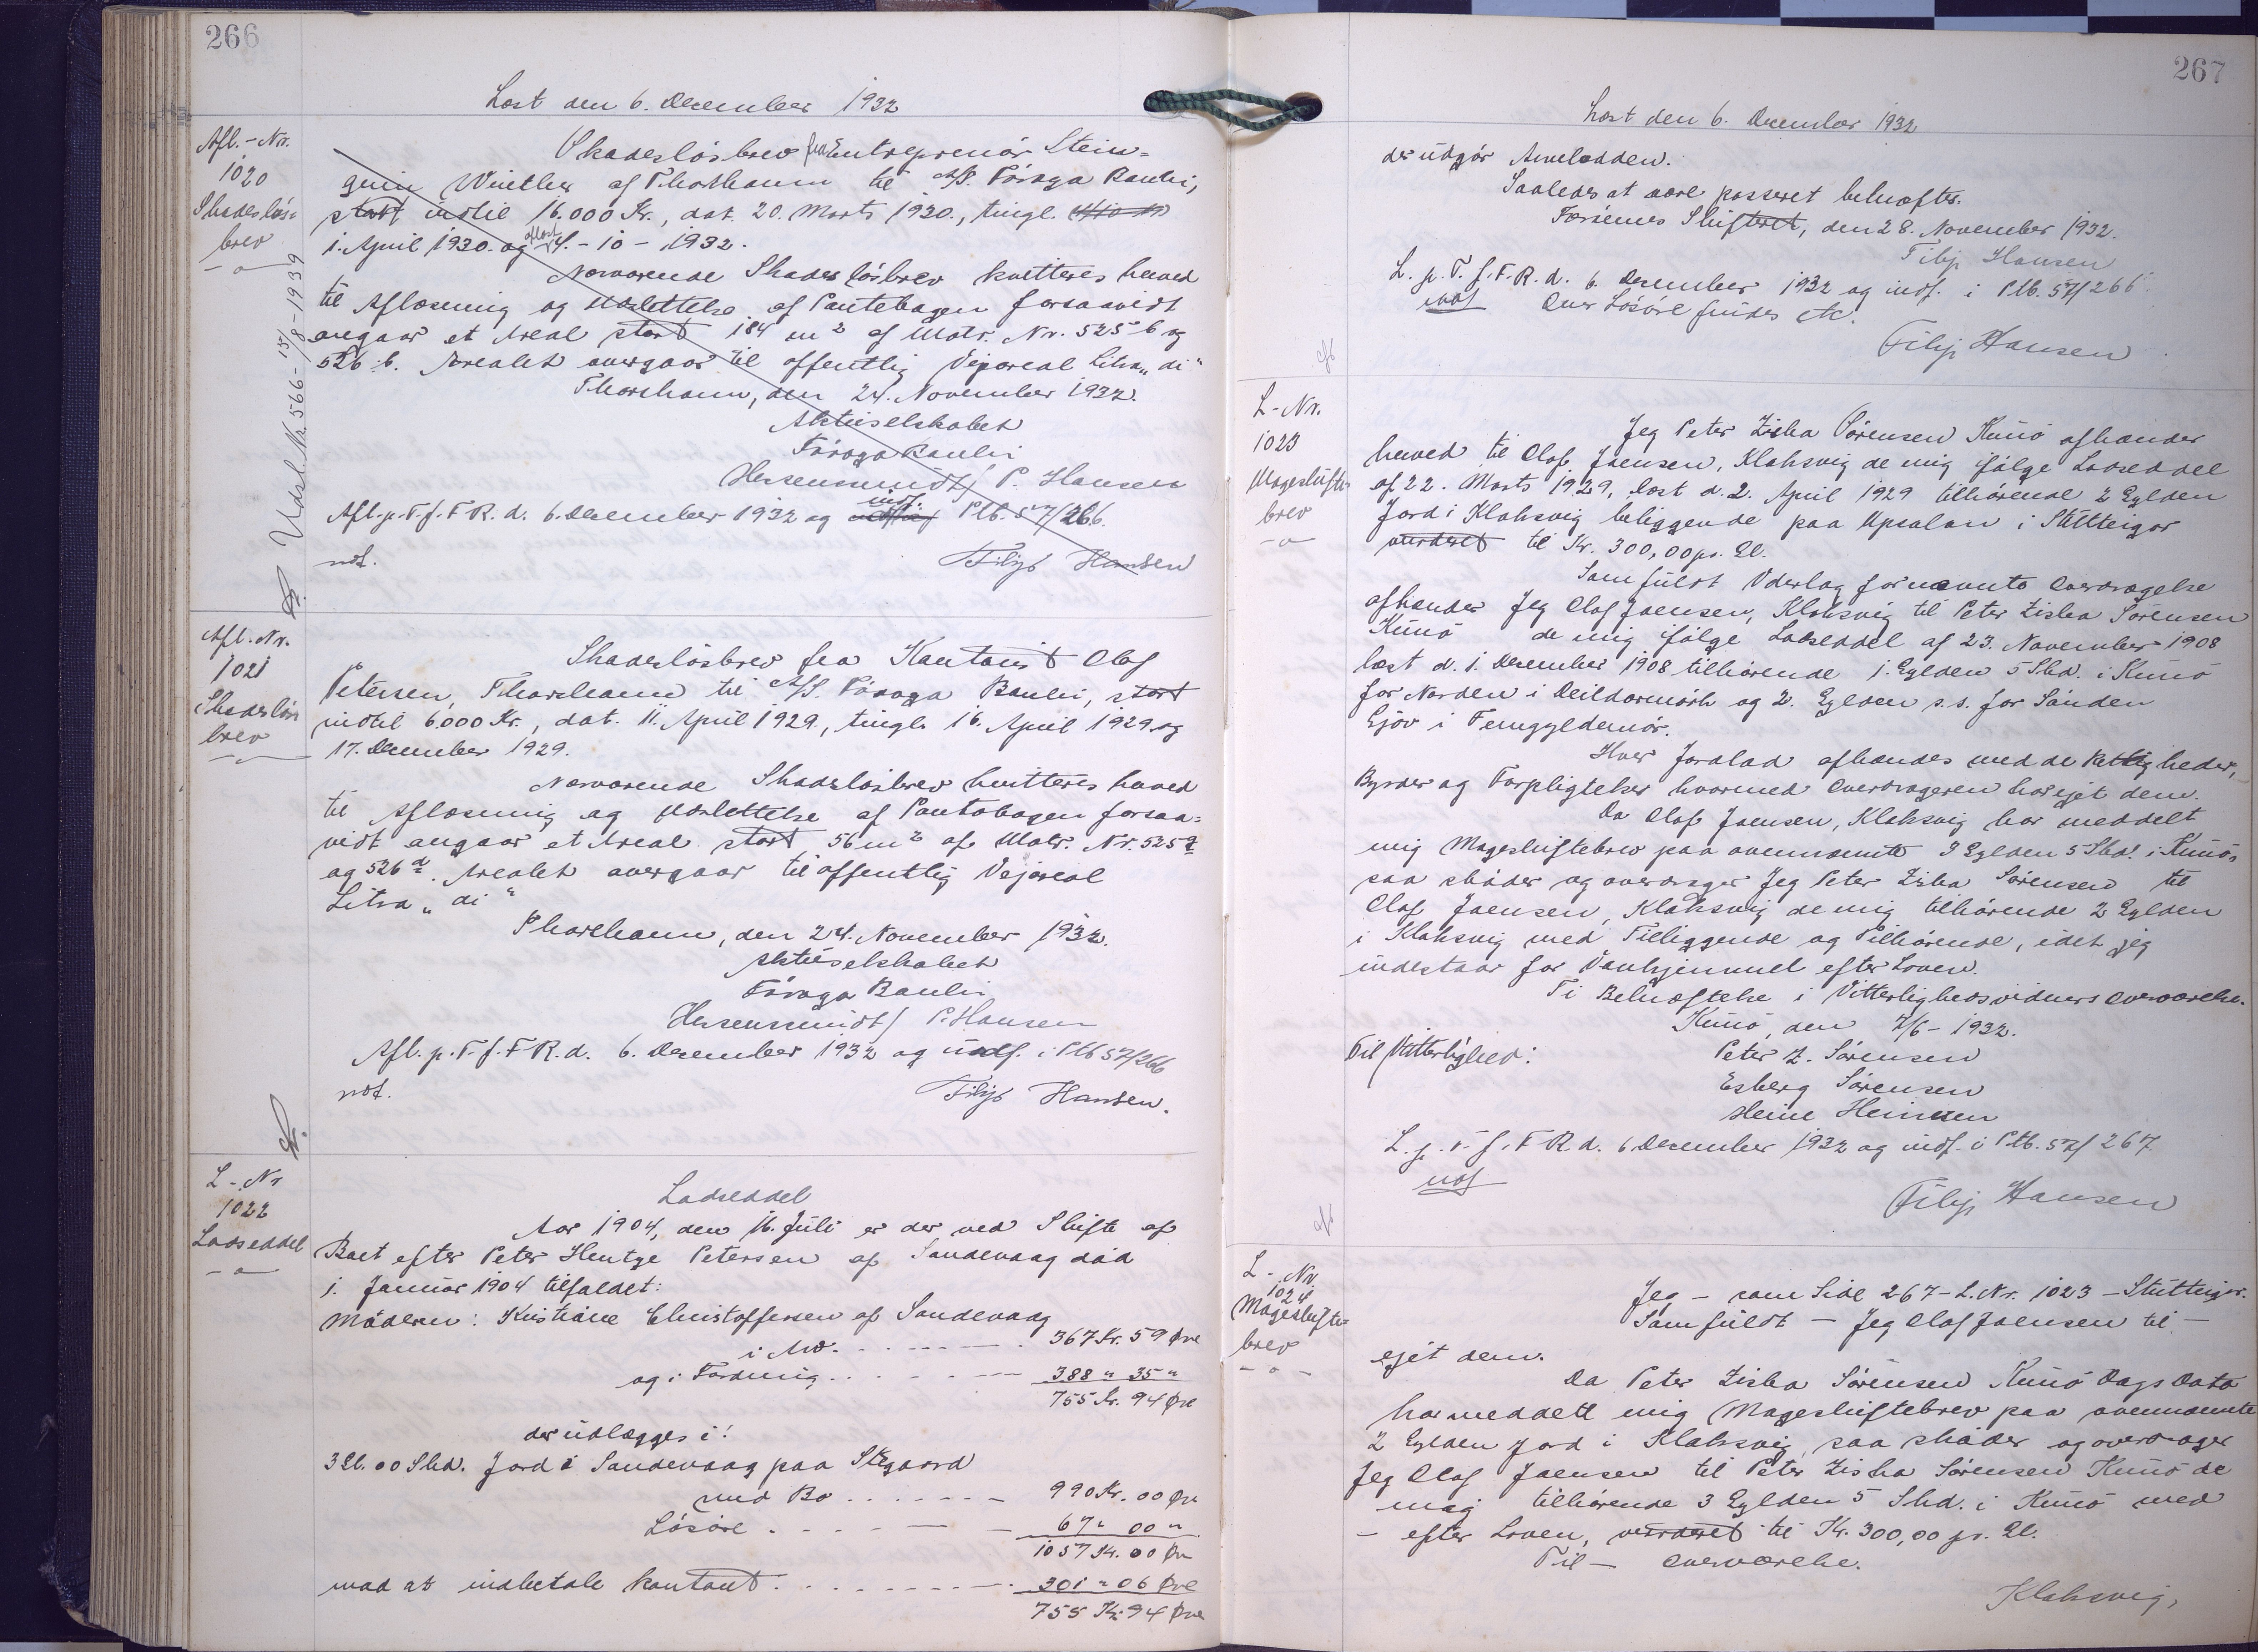 266
Læst den 6. December 1932
Afl.-Nr.
1020
Skadeslös=
brev
Udsl. Nr. 566 - 15/8 - 1939
Skadeslösbrev fra Entreprenör Stein=
grim Winther af Thorshavn til A/S. Föroya Banki,
stort indtil 16.000 Kr., dat. 20. Marts 1930., tingl.
1. April 1930. og aflæst 4. - 10 - 1932.
Nærværende Skadeslösbrev kvitteres herved
til Aflæsning og Udslettelse af Pantebogen forsaavidt
angaar et Areal stort 184 m² af Matr. Nr. 525 b og
526 b. Arealet overgaar til offentlig Vejareal Litra „di“
Thorshavn, den 24. November 1932.
Aktieselskabet
Föroya Banki
Hersenmindt/ P. Hansen
Afl. p. T. f. F. R. d. 6. December 1932 og indf. Ptb. 57/266.
not.
Filip Hansen
Afl. Nr.
1021
Skadeslös
brev
Skadeslösbrev fra Kontorist Olaf
Petersen, Thorshavn til A/S. Föroya Banki, stort
indtil 6000 Kr., dat. 11. April 1929., tingl. 16. April 1929. og
17. December 1929.
Nærværende Skadeslösbrev kvitteres herved
til Aflæsning og Udslettelse af Pantebogen forsaa=
vidt angaar et Areal stort 56 m² af Matr. Nr. 525 d
og 526 d. Arealet overgaar til offentlig Vejareal
Litra „di“
Thorshavn, den 24. November 1932.
Aktieselskabet
Föroya Banki
Hersenmindt/ P. Hansen
Afl. p. T. f. F. R. d. 6. December 1932 og indf. i Ptb 57/266
not.
Filip Hansen.
L - Nr
1022
Lodseddel
Lodseddel
Aar 1904, den 16. Juli er der ved Skifte af
Boet efter Peter Hentze Petersen af Sandevaag död
1. Januar 1904 tilfaldet:
Möderen: Kristiane Christoffersen af Sandevaag
i Arv. 367 Kr. 59 Øre
og i Fordring 388 " 35 "
755 Kr. 94 Øre
der udlægges i:
3 Gl. 00 Skd. Jord i Sandevaag paa Stigaard
med Bo 990 Kr. 00 Øre
Lösöre 67 " 00 "
1057 Kr. 00 Øre
mod at indbetale kontant 301 " 06 Øre
755 Kr. 94 Øre
267
Læst den 6. December 1932
der udgör Arvelodden.
Saaledes at være passeret bekræftes.
Færöernes Skifteret, den 28. November 1932.
Filip Hansen
L. p. T. f. F. R. d. 6. December 1932 og indf. i Ptb. 57/266.
not
Over Lösöre findes etc.
Filip Hansen
L - Nr.
1023
Mageskifte=
brev
Jeg Peter Ziska Sörensen Kunö afhænder
herved til Olaf Joensen, Klaksvig de mig ifölge Lodseddel
af 22. Marts 1929, læst d. 2. April 1929 tilhörende 2 Gylden
Jord i Klaksvig beliggende paa Upsalan i Stútteigar
vurderet til Kr. 300,00 pr. Gl.
Som fuldt Vderlag for nævnte Overdragelse
afhænder Jeg Olaf Joensen, Klaksvig til Peter Ziska Sörensen
Kunö de mig ifölge Lodseddel af 23. November 1908
læst d. 1. December 1908 tilhörende 1. Gylden 5 Skd. i Kunö
for Norden i Deildarmörk og 2. Gylden s.s. for Sönden
Gjöv i Femgyldemör.
Hver Jordlod afhændes med de Rettigheder,
Byrder og Forpligtelser hvormed Overdrageren har ejet dem.
Da Olaf Joensen, Klaksvig har meddelt
mig Mageskiftebrev paa ovennævnte 3 Gylden 5 Skd. i Kunö,
saa sköder og overdrager Jeg Peter Ziska Sörensen til
Olaf Joensen, Klaksvig de mig tilhörende 2 Gylden
i Klaksvig med Tilliggende og Tilhörende, idet jeg
indestaar for Vanhjemmel efter Loven.
Ti Bekræftelse i Vitterlighedsvidners Overværelse.
Kunö, den 7/6 - 1932.
Til Vitterlighed:
Peter Z. Sörensen
Esberg Sörensen
Heine Heinesen
L. p. T. f. F R. d. 6 December 1932 og indf. i Ptb. 57/267
not
Filip Hansen
L - Nr.
1024
Mageskifte=
brev
Jeg - som Side 267 - L. Nr. 1023 - Stútteigar.
Som fuldt - Jeg Olaf Joensen til -
ejet dem.
Da Peter Ziska Sörensen Kunö Dags Dato
har meddelt mig Mageskiftebrev paa ovennævnte
2 Gylden Jord i Klaksvig, saa sköder og overdrager
Jeg Olaf Joensen til Peter Ziska Sörensen Kunö de
mig tilhörende 3 Gylden 5 Skd. i Kunö med
- efter Loven, vurderet til Kr. 300,00 pr. Gl.
Til - Overværelse.
Klaksvig,